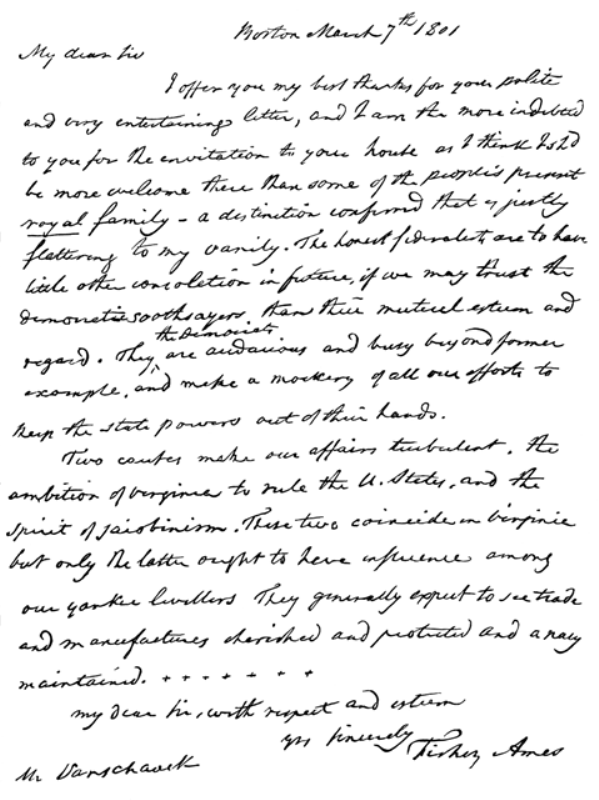 Boston March 7th 1801
My dear Sir
I offer you my best thanks for your polite
and very entertaining letter, and I am the more indebted
to you for the invitation to your house as I think I shd
be more welcome there than some of the people's present
royal family - a distinction confirmed that is justly
flattering to my vanity. The honest federalists are to have
little other consolation in future, if we may trust the
democratic soothsayers, than their mutual esteem and
the Democrats
regard. They, are audacious and busy beyond former
example, and make a mockery of all our efforts to
keep the state powers out of their hands.
Two causes make our affairs turbulent. The
ambition of Virginia to rule the U. States, and the
spirit of jacobinism. These two coincide in Virginia
but only the latter ought to have influence among
our yankee levellers They generally expect to see trade
and manufactures cherished and protected and a navy
maintained. + + + + + + +
my dear Sir, with respect and esteem
yrs sincerely
Fisher Ames
Mr Vanschaack